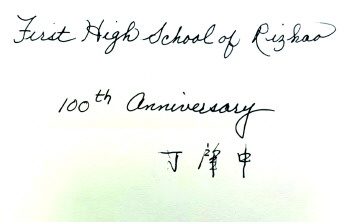 First High School of Rizhao
100th Anniversary
丁肇中